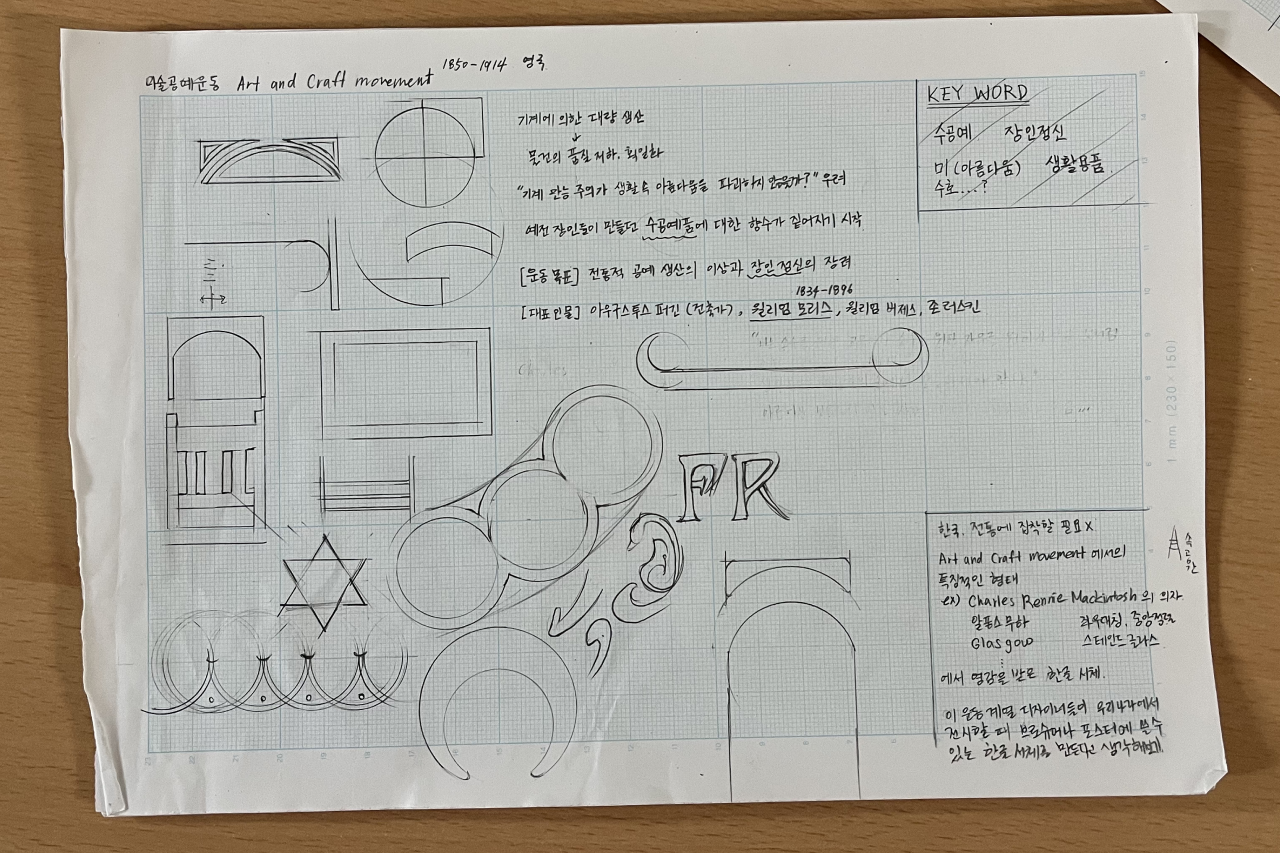 미술공예운동 Art and Craft movement 1850-1914 영국
기계에 의한 대량 생산
물건의 품질 저하, 획일화
"기계 만능 주의가 생활 속 아름다움을 파괴하지 않을까?" 우려
예전 장인들이 만들던 수공예품에 대한 향수가 짙어지기 시작
[운동 목표] 전통적 공예 생산의 이상과 장인 정신의 장려
1834-1896
[대표 인물] 아우구스투스 퍼긴 (건축가), 윌리엄 모리스, 윌리엄 버제스, 존 러스킨
KEY WORD
수공예 장인정신
미 (아름다움) 생활용품
수호...?
Charles
FR
한국, 전통에 집착할 필요 X
Art and Craft movement 에서의
특징적인 형태
ex) Charles Rennie Mackintosh 의 의자
알폰스 무하 좌우대칭, 중앙정렬
Glasgow 스테인드 글라스
에서 영감을 받은 한글 서체.
이 운동 계열 디자이너들이 우리나라에서
전시할 때 브로슈어나 포스터에 쓸 수
있는 한글 서체를 만든다고 생각해보기
1 mm (230 × 150)